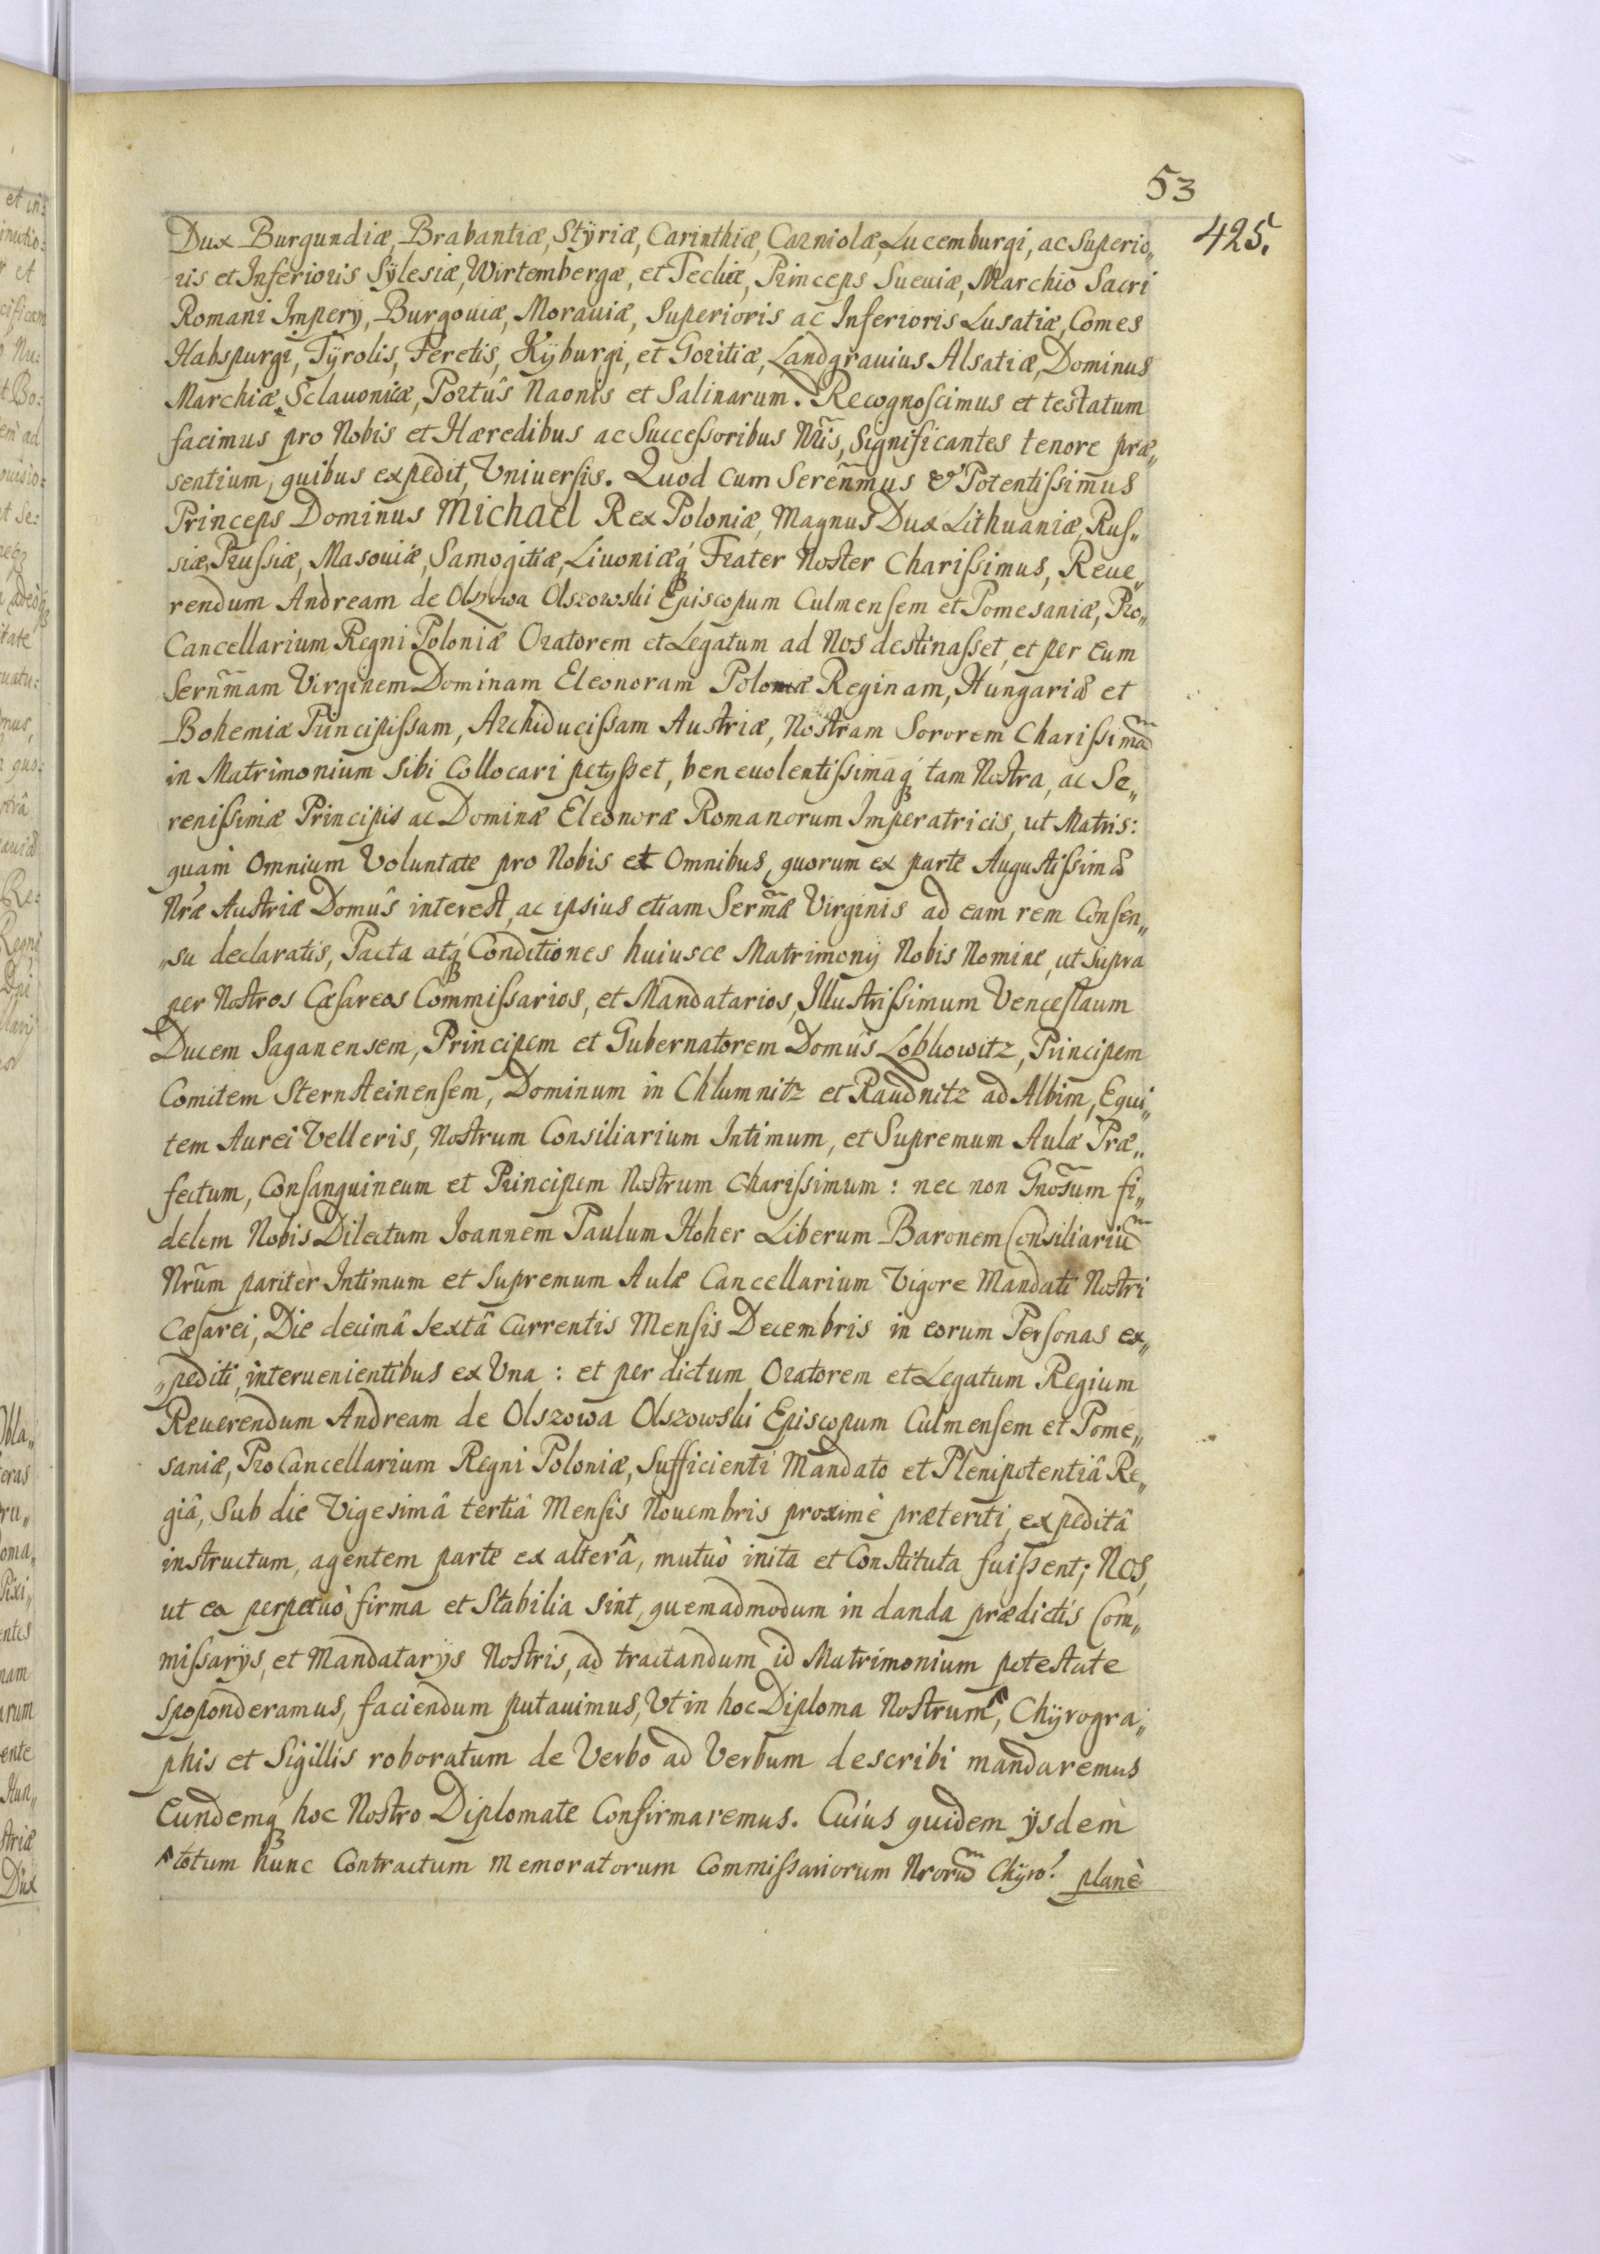 53
425.
Dux Burgundiæ, Brabantiæ, Stÿriæ, Carinthiæ, Carniolæ, Lucemburgi, ac Superio„
ris et Inferioris Sÿlesiæ, Wirtembergæ, et Teckæ, Princeps Sueuiæ, Marchio Sacri
Romani Imperÿ, Burgouiæ, Morauiæ, Superioris ac Inferioris Lusatiæ, Comes
Habspurgi, Tÿrolis, Feretis, Kÿburgi, et Goritiæ, Landgrauius Alsatiæ, Dominus
Marchiæ Sclauonicæ, Portûs Naonis et Salinarum. Recognoscimus et testatum
facimus pro Nobis et Hæredibus ac Successoribus Nris, Significantes tenore præ„
sentium, quibus expedit, Vniuersis. Quod cum Serenmus & Potentissimus
Princeps Dominus Michael Rex Poloniæ, Magnus Dux Lithuaniæ, Rus„
siæ, Prussiæ, Masouiæ, Samogitiæ, Liuoniæq́ Frater Noster Charissimus, Reue„
rendum Andream de Olszowa Olszowski Episcopum Culmensem et Pomesaniæ, Pro„
Cancellarium Regni Poloniæ Oratorem et Legatum ad Nos destinasset, et per Eum
Sernmam Virginem Dominam Eleonoram Poloniæ Reginam, Hungariæ et
Bohemiæ Principissam, Archiducissam Austriæ, Nostram Sororem Charissimã
in Matrimonium sibi Collocari petÿsset, beneuolentissimaq́ tam Nostra, ac Se„
renissimæ Principis ac Dominæ Eleonoræ Romanorum Imperatricis, ut Matris:
quam Omnium Voluntate pro Nobis et Omnibus, quorum ex parte Augustissimæ
Nræ Austriæ Domûs interest, ac ipsius etiam Sermæ Virginis ad eam rem Consen„
„su declaratis, Pacta atq́ Conditiones huiusce Matrimonÿ Nobis Nomine, ut supra
per Nostros Cæsareos Commissarios, et Mandatarios, Illustrissimum Venceslaum
Ducem Saganensem, Principem et Gubernatorem Domûs Lobkowitz, Principem
Comitem Sternsteinensem, Dominum in Chlumnitz et Raudnitz ad Albim, Equi„
tem Aurei Velleris, Nostrum Consiliarium Intimum, et Supremum Aulæ Præ„
fectum, Consanguineum et Principem Nostrum Charissimum: nec non Gnosum fi„
delem Nobis Dilectum Ioannem Paulum Hoher Liberum Baronem Consiliariũ
Nrũm pariter Intimum et Supremum Aulæ Cancellarium Vigore Mandati Nostri
Cæsarei, Die decimâ sextâ Currentis Mensis Decembris in eorum Personas ex„
„pediti, interuenientibus ex Vna: et per dictum Oratorem et Legatum Regium
Reuerendum Andream de Olszowa Olszowski Episcopum Culmensem et Pome„
saniæ, ProCancellarium Regni Poloniæ, Sufficienti Mandato et Plenipotentiâ Re„
giâ, Sub die Vigesimâ tertiâ Mensis Nouembris proximè præteriti, expeditâ
instructum, agentem parte ex alterâ, mutuò inita et Constituta fuissent; NOS,
ut ea perpetuò firma et Stabilia sint, quemadmodum in danda prædictis Com„
missarÿs, et Mandatarÿs Nostris, ad tractandum id Matrimonium potestate
spoponderamus, faciendum putauimus, Vt in hoc Diploma Nostrum^, Chÿrogra„
phis et Sigillis roboratum de Verbo ad Verbum describi mandaremus
Eundemq́ hoc Nostro Diplomate Confirmaremus. Cuius quidem ÿsdem
^totum hunc Contractum memoratorum Commissariorum Nrorũ Chÿro: planè